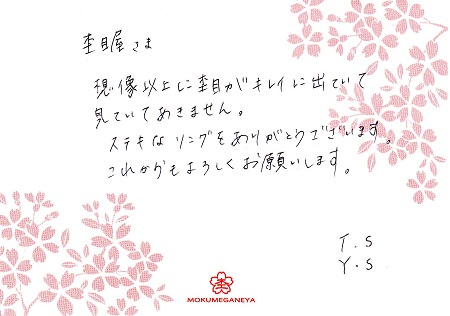 杢目屋さま
想像以上に杢目がキレイに出ていて
見ていてあきません。
ステキなリングをありがとうございます。
これからもよろしくお願いします。
T.S
Y.S
MOKUMEGANEYA